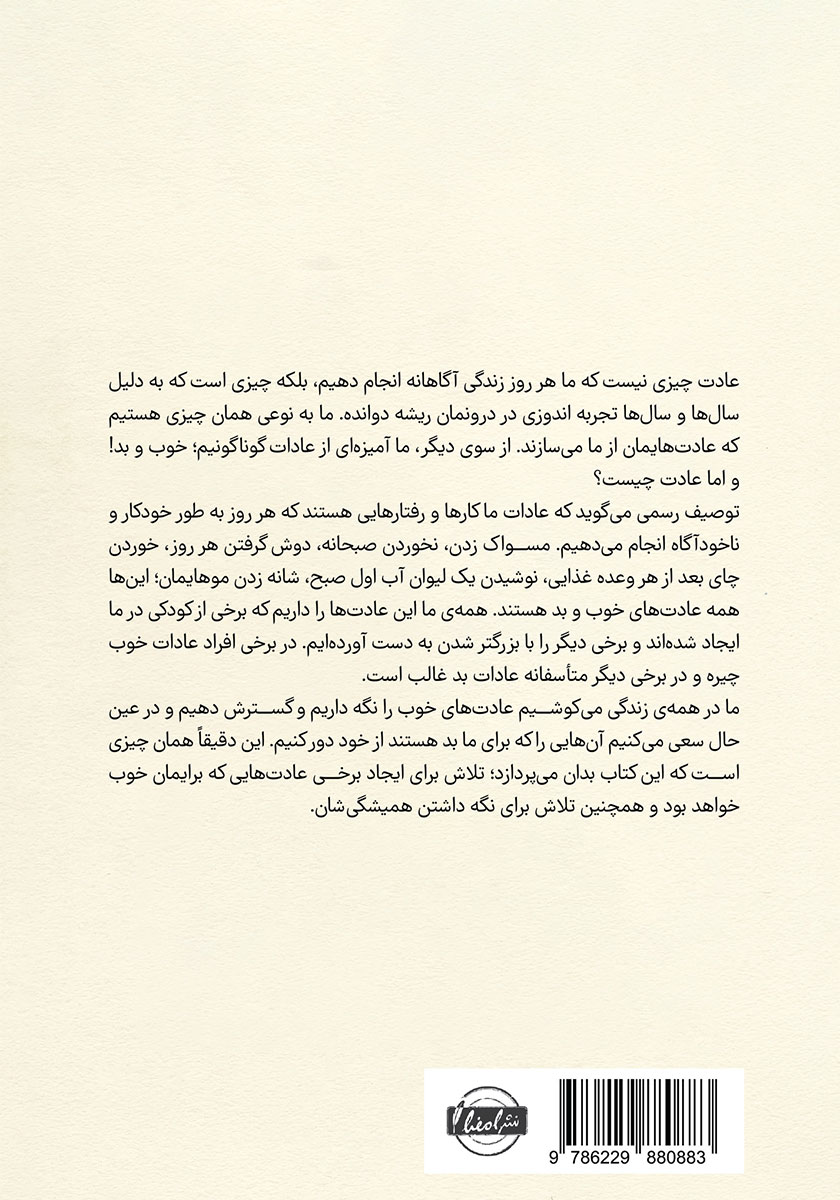 عادت چیزی نیست که ما هر روز زندگی آگاهانه انجام دهیم، بلکه چیزی است که به دلیل
سال‌ها و سال‌ها تجربه اندوزی در درونمان ریشه دوانده. ما به نوعی همان چیزی هستیم
که عادت‌هایمان از ما می‌سازند. از سوی دیگر، ما آمیزه‌ای از عادات گوناگونیم؛ خوب و بد!
و اما عادت چیست؟
توصیف رسمی می‌گوید که عادات ما کارها و رفتارهایی هستند که هر روز به طور خودکار و
ناخودآگاه انجام می‌دهیم. مسـواک زدن، نخوردن صبحانه، دوش گرفتن هر روز، خوردن
چای بعد از هر وعده غذایی، نوشیدن یک لیوان آب اول صبح، شانه زدن موهایمان؛ این‌ها
همه عادت‌های خوب و بد هستند. همه‌ی ما این عادت‌ها را داریم که برخی از کودکی در ما
ایجاد شده‌اند و برخی دیگر را با بزرگتر شدن به دست آورده‌ایم. در برخی افراد عادات خوب
چیره و در برخی دیگر متأسفانه عادات بد غالب است.
ما در همه‌ی زندگی می‌کوشـیم عادت‌های خوب را نگه داریم و گسـترش دهیم و در عین
حال سعی می‌کنیم آن‌هایی را که برای ما بد هستند از خود دور کنیم. این دقیقاً همان چیزی
اسـت که این کتاب بدان می‌پردازد؛ تلاش برای ایجاد برخـی عادت‌هایی که برایمان خوب
خواهد بود و همچنین تلاش برای نگه داشتن همیشگی‌شان.
9 786229 880883